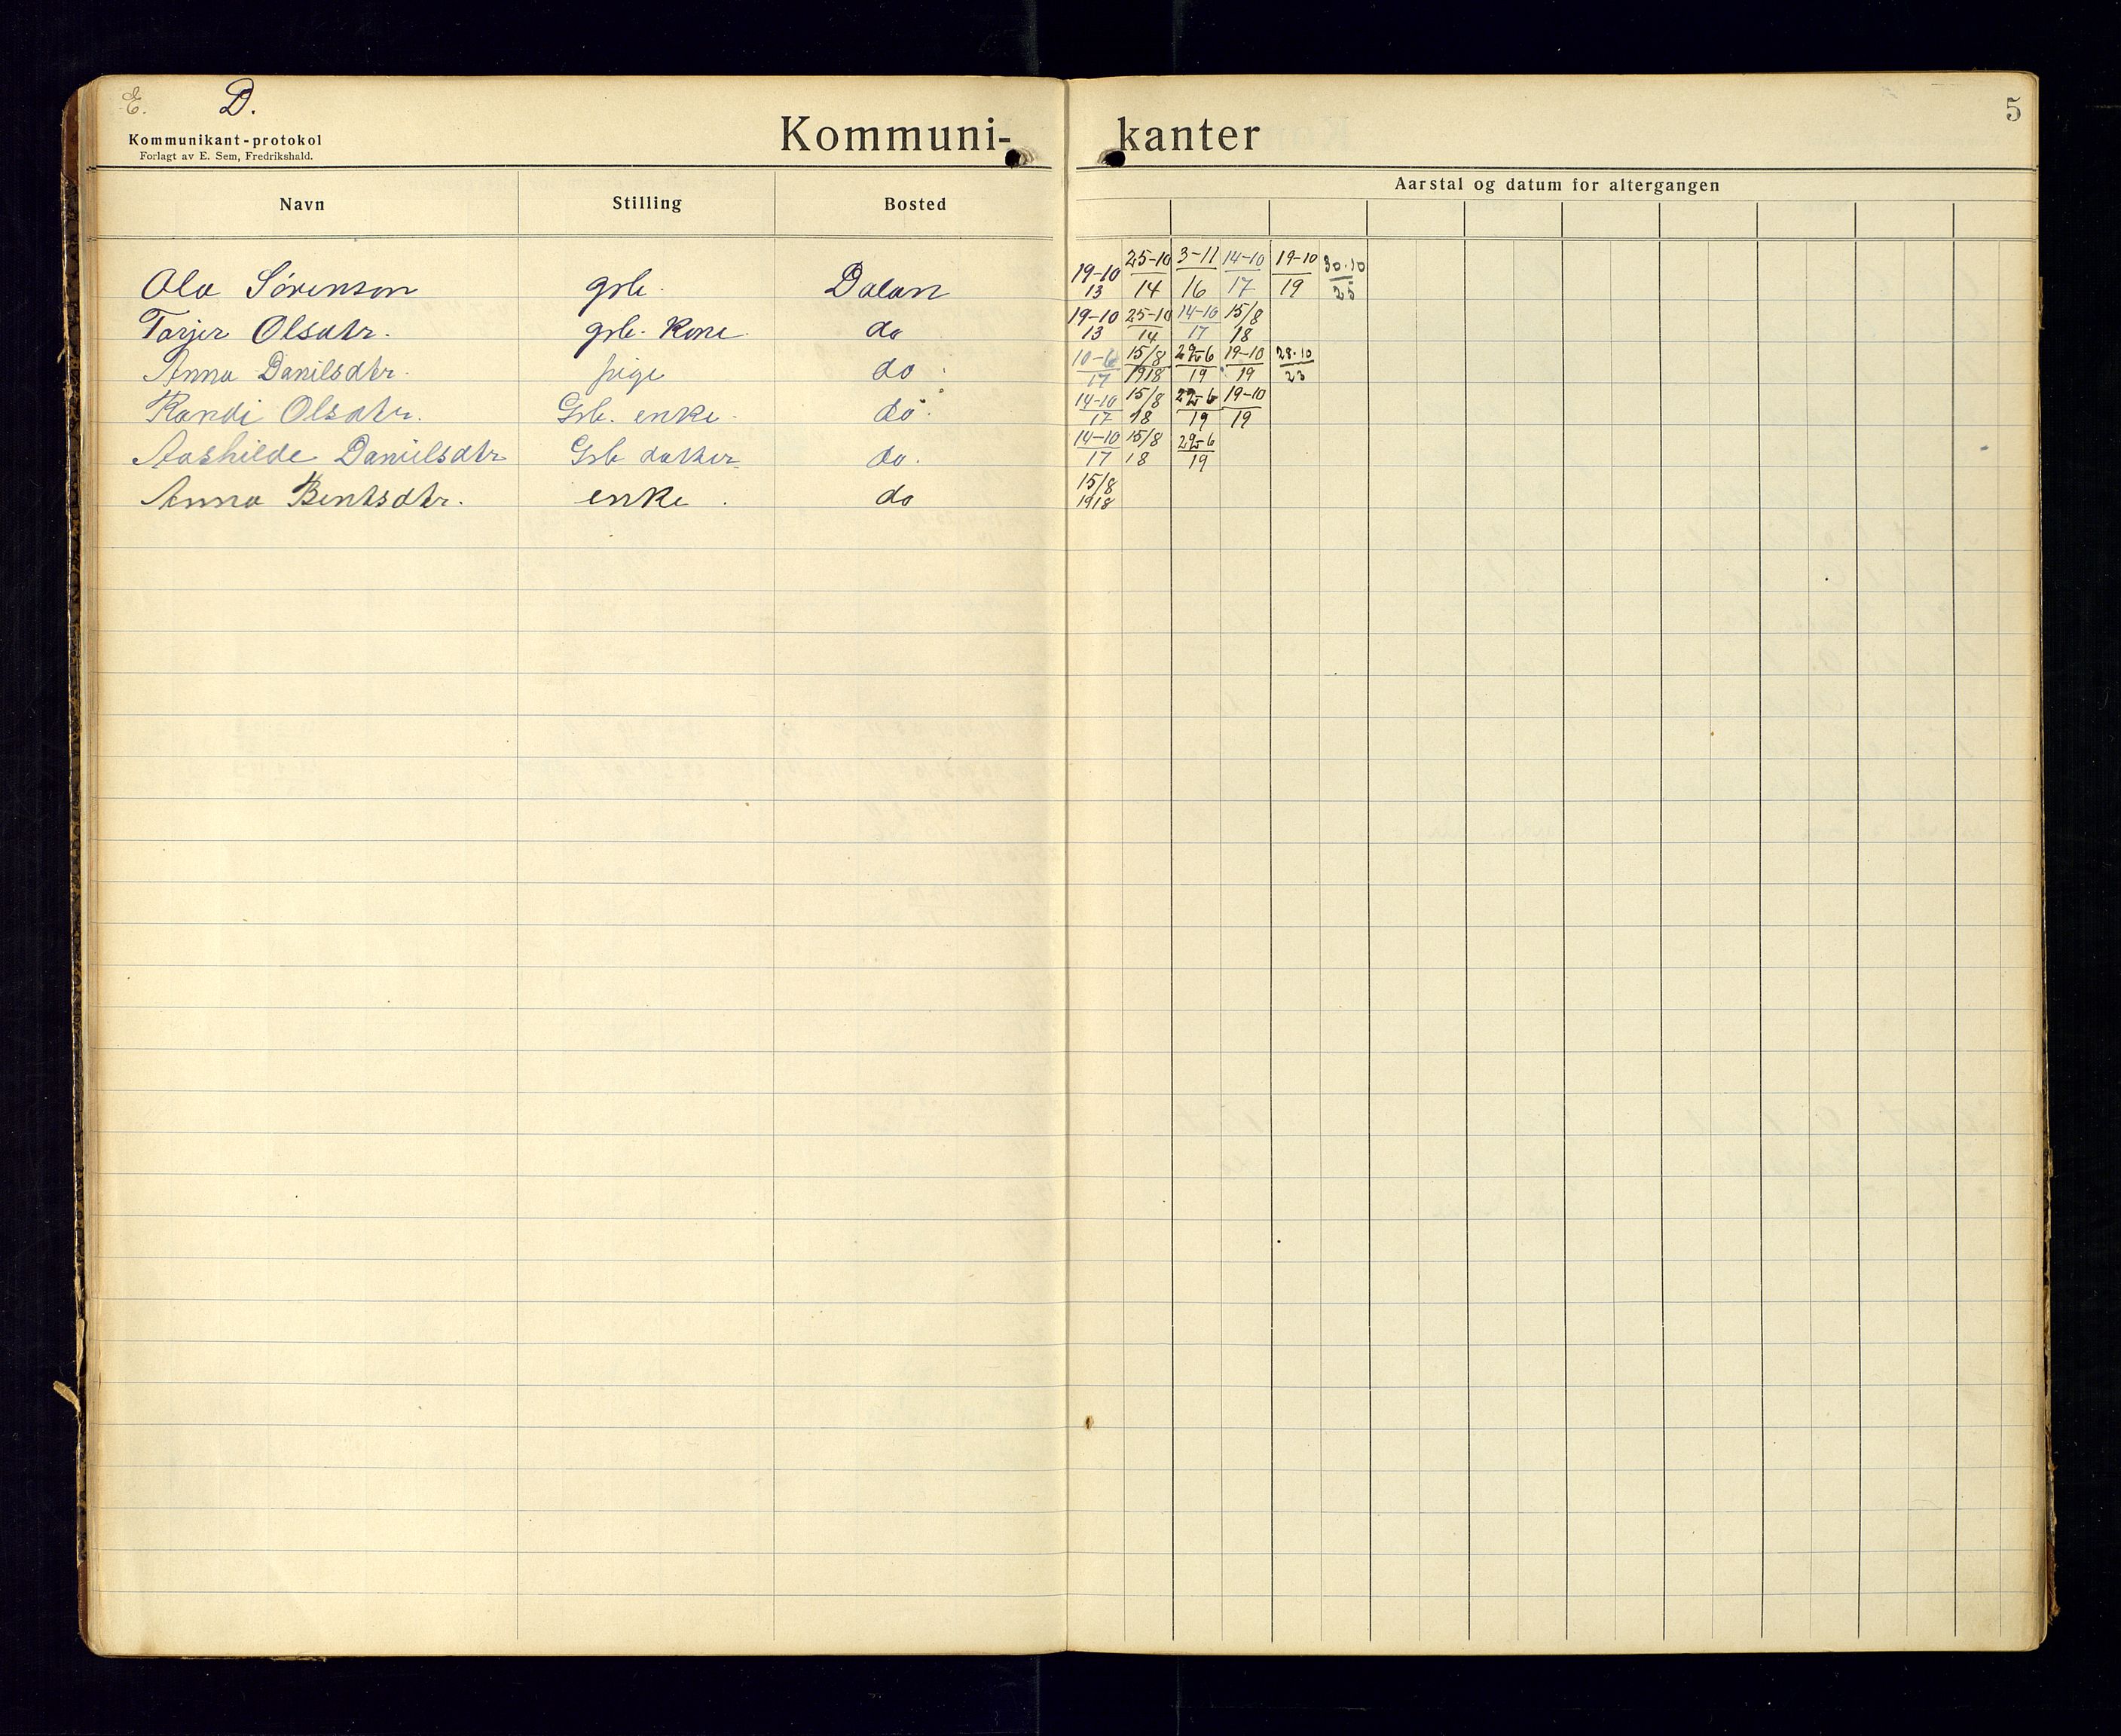 E. D.
5
Kommunikant-protokol
Forlagt av E. Sem, Fredrikshald.
Kommuni- kanter
Aarstal og datum for altergangen
Navn Stilling Bosted
Ola Sørenson grb. Dalan 19-10/13 25-10/14 3-11/16 14-10/17 19-10/19 30.10/25
Tarjer Olsdtr. grb. kone do 19-10/13 25-10/14 14-10/17 15/8 18
Anna Danilsdtr. pige do 10-6/17 15/8 1918 29-6/19 19-10/19 28.10/23
Randi Olsdtr. Grb. enke do. 14-10/17 15/8 18 29-6/19 19-10/19
Aashilde Danielsdtr Grb datter do. 14-10/17 15/8 18 29-6/19
Anna Bentsdtr. enke. do 15/8 1918